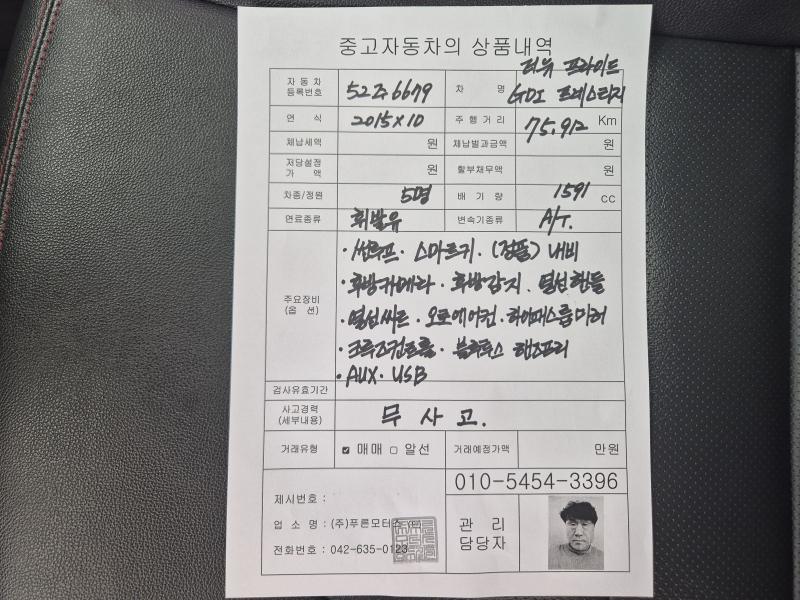 중고자동차의 상품내역
자동차 등록번호 52조6679 차 명 더뉴 프라이드 GDI 프레스티지
연 식 2015×10 주행거리 75,912 Km
체납세액 원 체납벌과금액 원
저당설정 가 액 원 할부채무액 원
차종/정원 5명 배 기 량 1591 cc
연료종류 휘발유 변속기종류 A/T.
주요장비 (옵 션)
·썬루프·스마트키·(정품)네비
·후방카메라·후방감지·열선핸들
·열선씨트·오토에어컨·하이패스룸미러
·크루즈컨트롤·블루투스 핸즈프리
·AUX·USB
검사유효기간
사고경력 (세부내용) 무 사 고.
거래유형 ☑ 매매 □ 알선 거래예정가액 만원
010-5454-3396
제시번호 :
업 소 명 : (주)푸른모터스
전화번호 : 042-635-0123
관 리
담당자